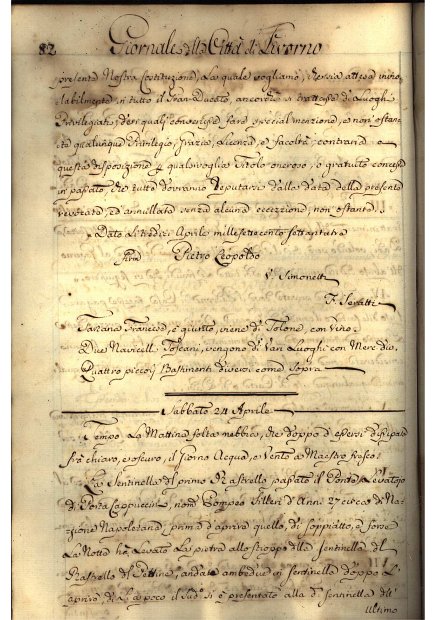 82 Giornale della Città di Livorno
presente Nostra Costituzione, La quale vogliamo, che sia attesa inviolabilmente
in tutto il Gran-Ducato, ancorchè si trattasse di Luoghi
Privilegiati, dei quali convenisse farne special menzione, e non ostante
qualunque Privilegio, Grazia, Licenza, e facoltà contraria a
questa disposizione per qualsivoglia Titolo oneroso, o gratuito concessa
in passato, che tutto dovranno reputarsi dalla data della presente
revocata, ed annullata senza alcuna eccezione, non ostante.
Dato Li tredici Aprile mille settecento settantatre
Pietro Leopoldo
V. Simonetti
F. Seratti
Tartana Francese, è giunto, viene di Tolone, con vino.
Due Navicelli Toscani, vengono di Vari Luoghi con Merc.
Quattro piccoli Bastimenti diversi come Sopra
Sabbato 24 Aprile
Tempo La Mattina folta nebbia, che doppo d'essersi dissipata
frà chiaro, e oscuro, il giorno Acqua, e Vento a Maestro fresco.
La Sentinella del primo Rastrello passato il Ponte a Levatojo
di Porta Cappuccini, nom. Pompeo Filleri d'Anni 27 circa di Nazione
Napoletana, prima d'aprirsi quello, di soppiatto, e forse
La Notte hà Levato La pietra allo schioppo della sentinella del
Rastrello del Pettine, andati ambedue in sentinella doppo L'
aprirsi, di Là a poco il Sud.o si è presentato alla d.a sentinella dell'
ultimo